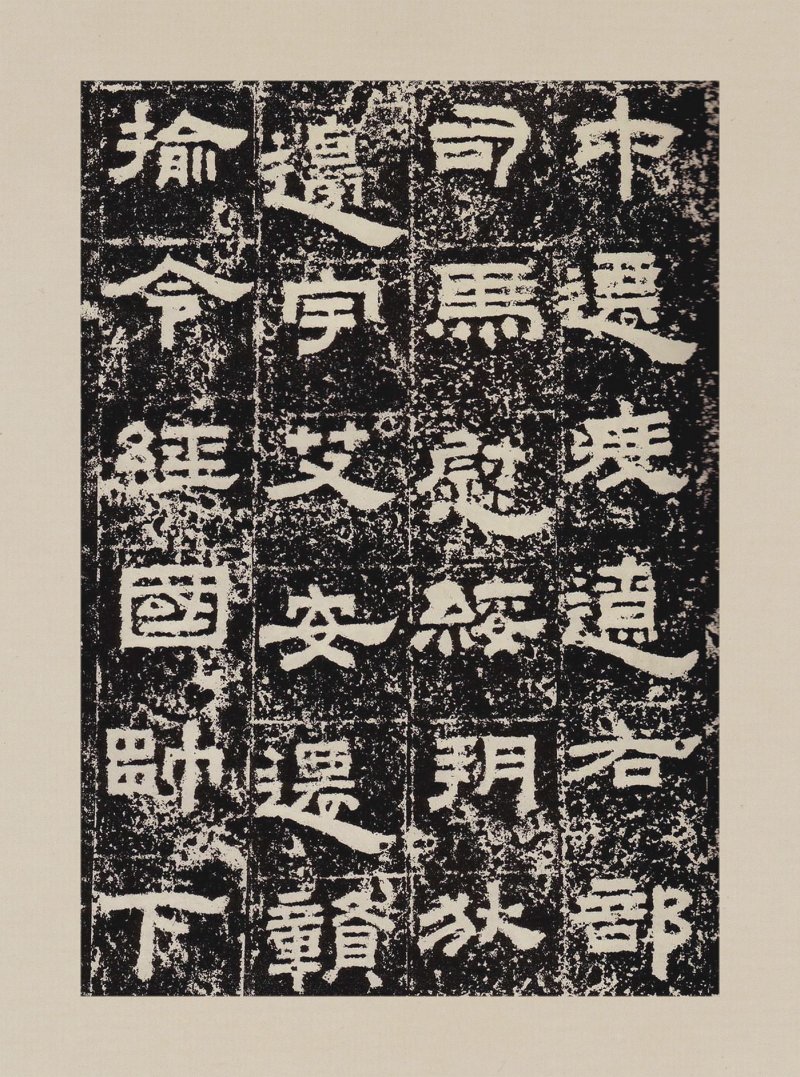 中遷度遼右部
司馬慰綏朔狄
邊宇艾安遷贛
榆令經國帥下